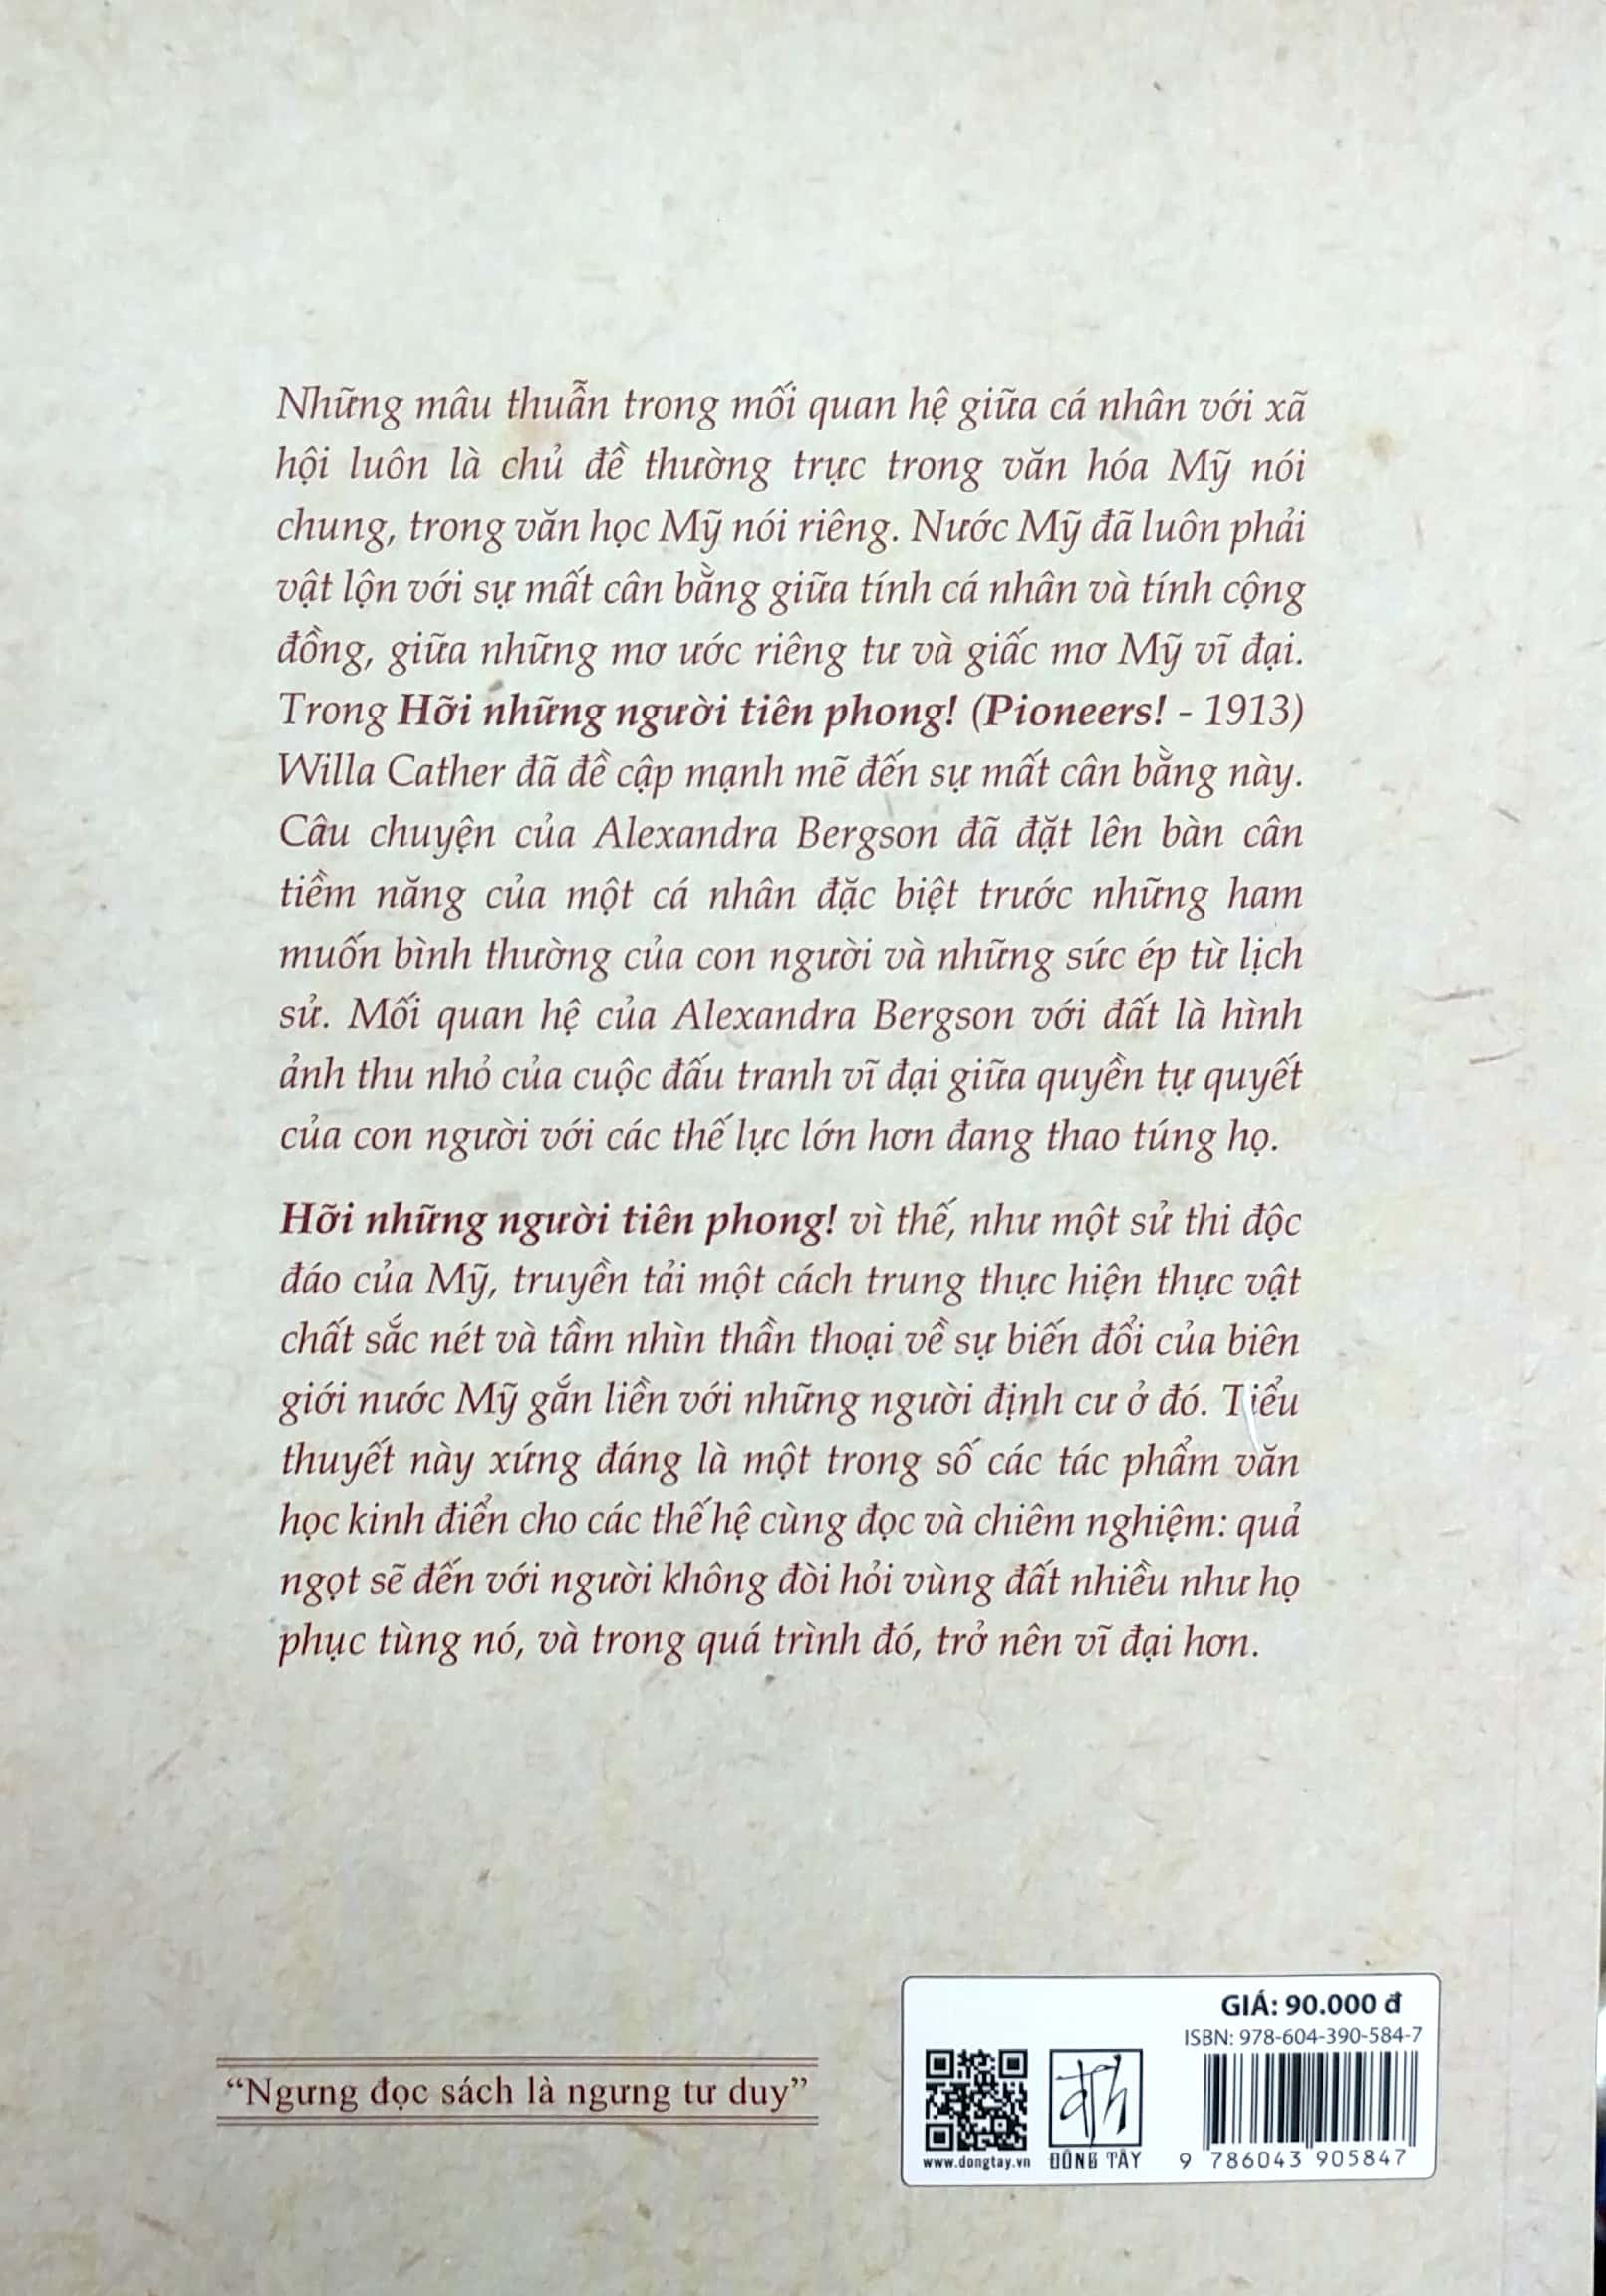 Những mâu thuẫn trong mối quan hệ giữa cá nhân với xã
hội luôn là chủ đề thường trực trong văn hóa Mỹ nói
chung, trong văn học Mỹ nói riêng. Nước Mỹ đã luôn phải
vật lộn với sự mất cân bằng giữa tính cá nhân và tính cộng
đồng, giữa những mơ ước riêng tư và giấc mơ Mỹ vĩ đại.
Trong Hỡi những người tiên phong! (Pioneers! - 1913)
Willa Cather đã đề cập mạnh mẽ đến sự mất cân bằng này.
Câu chuyện của Alexandra Bergson đã đặt lên bàn cân
tiềm năng của một cá nhân đặc biệt trước những ham
muốn bình thường của con người và những sức ép từ lịch
sử. Mối quan hệ của Alexandra Bergson với đất là hình
ảnh thu nhỏ của cuộc đấu tranh vĩ đại giữa quyền tự quyết
của con người với các thế lực lớn hơn đang thao túng họ.
Hỡi những người tiên phong! vì thế, như một sử thi độc
đáo của Mỹ, truyền tải một cách trung thực hiện thực vật
chất sắc nét và tầm nhìn thần thoại về sự biến đổi của biên
giới nước Mỹ gắn liền với những người định cư ở đó. Tiểu
thuyết này xứng đáng là một trong số các tác phẩm văn
học kinh điển cho các thế hệ cùng đọc và chiêm nghiệm: quả
ngọt sẽ đến với người không đòi hỏi vùng đất nhiều như họ
phục tùng nó, và trong quá trình đó, trở nên vĩ đại hơn.
"Ngưng đọc sách là ngưng tư duy"
GIÁ: 90.000 đ
ISBN: 978-604-390-584-7
www.dongtay.vn
ĐÔNG TÂY
9 786043 905847